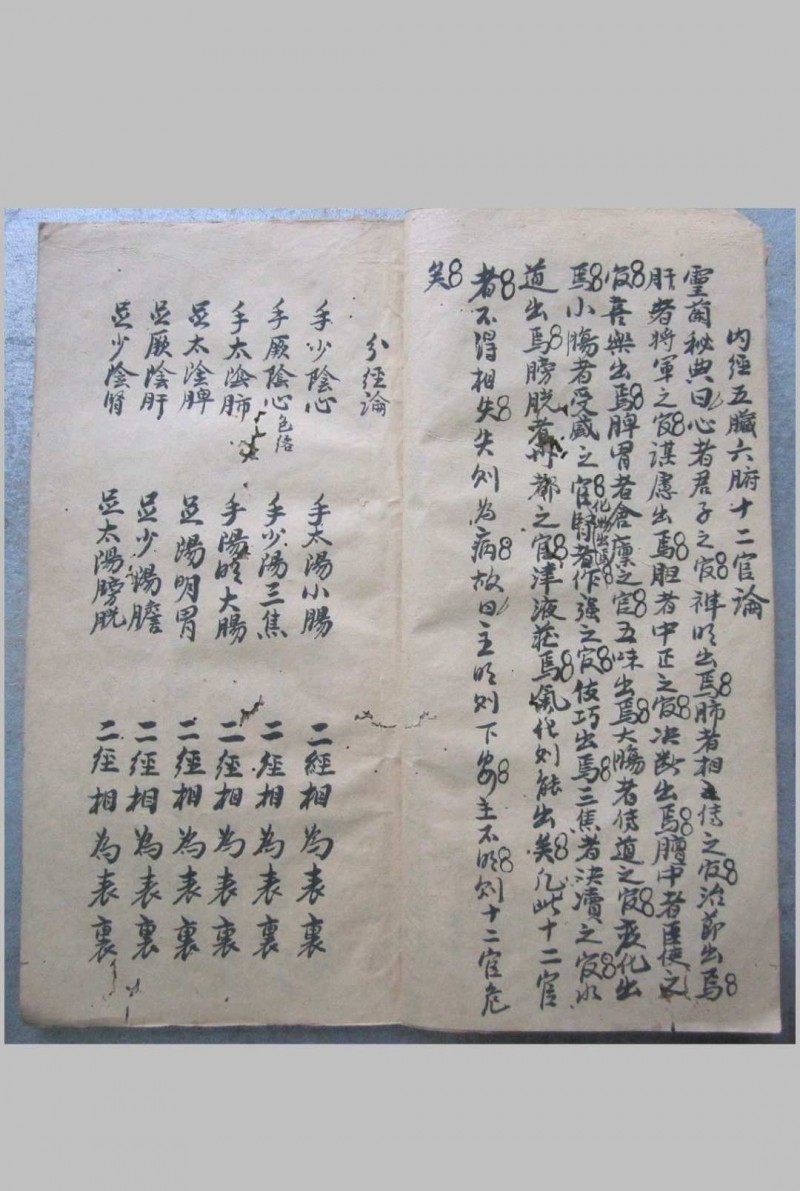 內經五臟六腑十二官論
靈蘭秘典曰心者君子之官神明出焉肺者相傅之官治節出焉
肝者將軍之官謀慮出焉胆者中正之官决断出焉膻中者臣使之
官喜樂出焉脾胃者倉廩之官五味出焉大腸者傳道之官变化出
焉小腸者受盛之官化物出焉腎者作强之官伎巧出焉三焦者决瀆之官水
道出焉膀胱者州都之官津液藏焉氣化則能出矣凡此十二官
者不得相失失則為病故曰主明則下安主不明則十二官危
矣
分經論
手少陰心 手太陽小腸 二經相為表裏
手厥陰心色絡 手少陽三焦 二經相為表裏
手太陰肺 手陽明大腸 二經相為表裏
足太陰脾 足陽明胃 二經相為表裏
足厥陰肝 足少陽膽 二經相為表裏
足少陰腎 足太陽膀胱 二經相為表裏